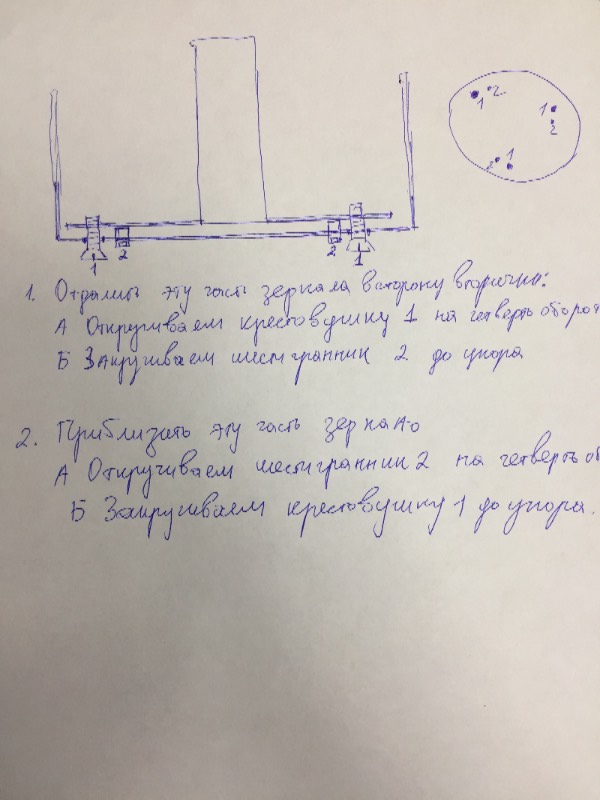 1 2
1 2
2 1
1 2 2 1
1. Отдалить эту часть зеркала в сторону вторично:
А Откручиваем крестовушку 1 на четверть оборот
Б Закручиваем шестигранник 2 до упора
2. Приблизить эту часть зеркало
А Откручиваем шестигранник 2 на четверть об
Б Закручиваем крестовушку 1 до упора.